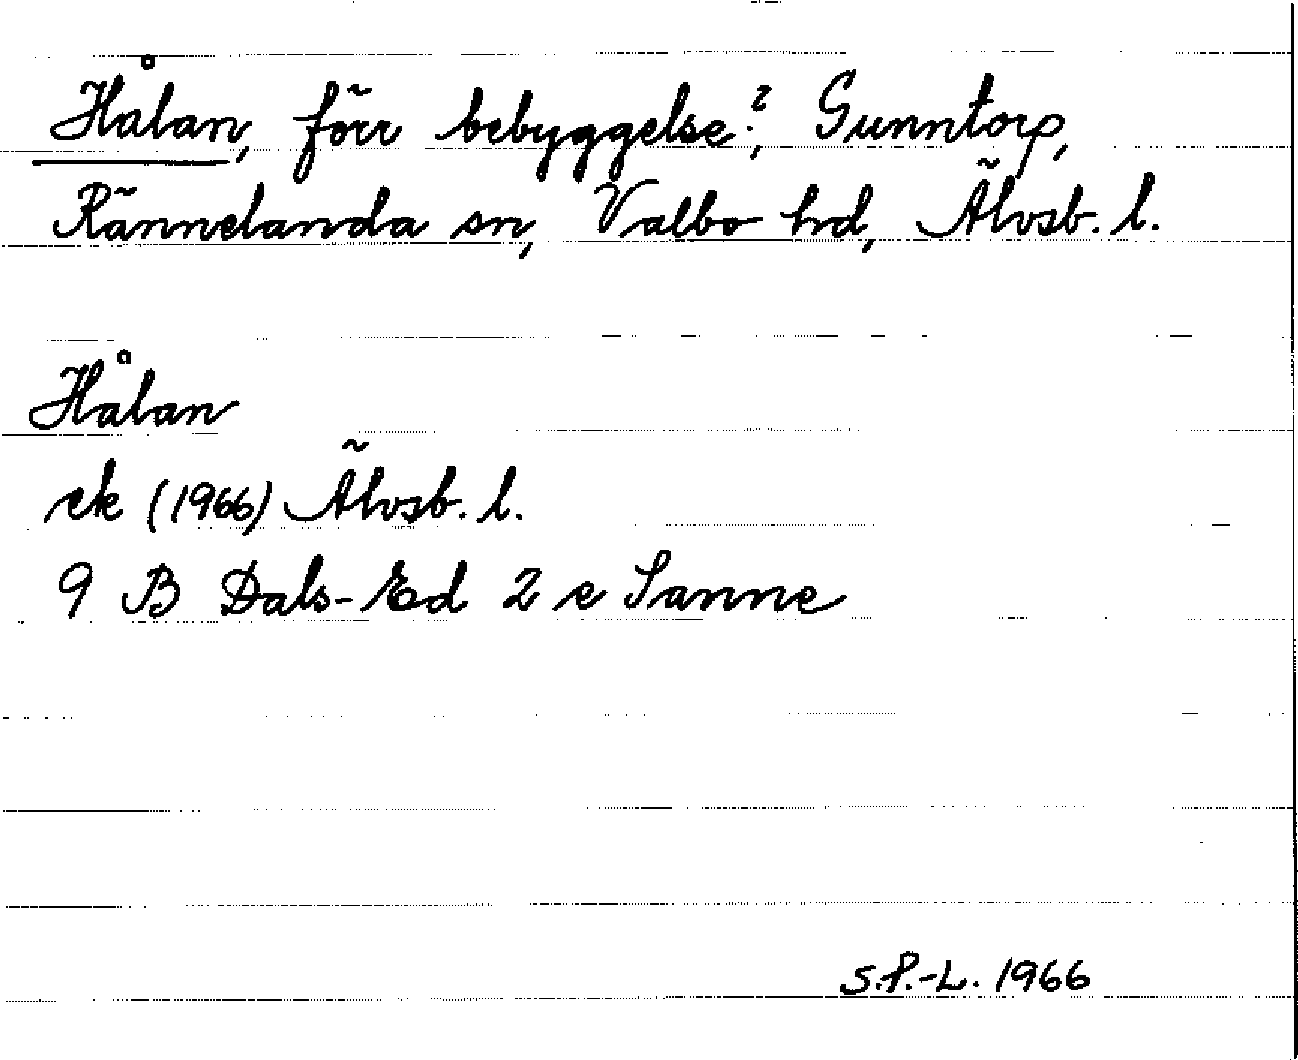 Hålan, förr bebyggelse?, Gunntorp,
Rännelanda sn, Valbo hd, Älvsb. l.
Hålan
ek (1966) Älvsb. l.
9 B Dals-Ed 2 e Sanne
S.P.-L. 1966